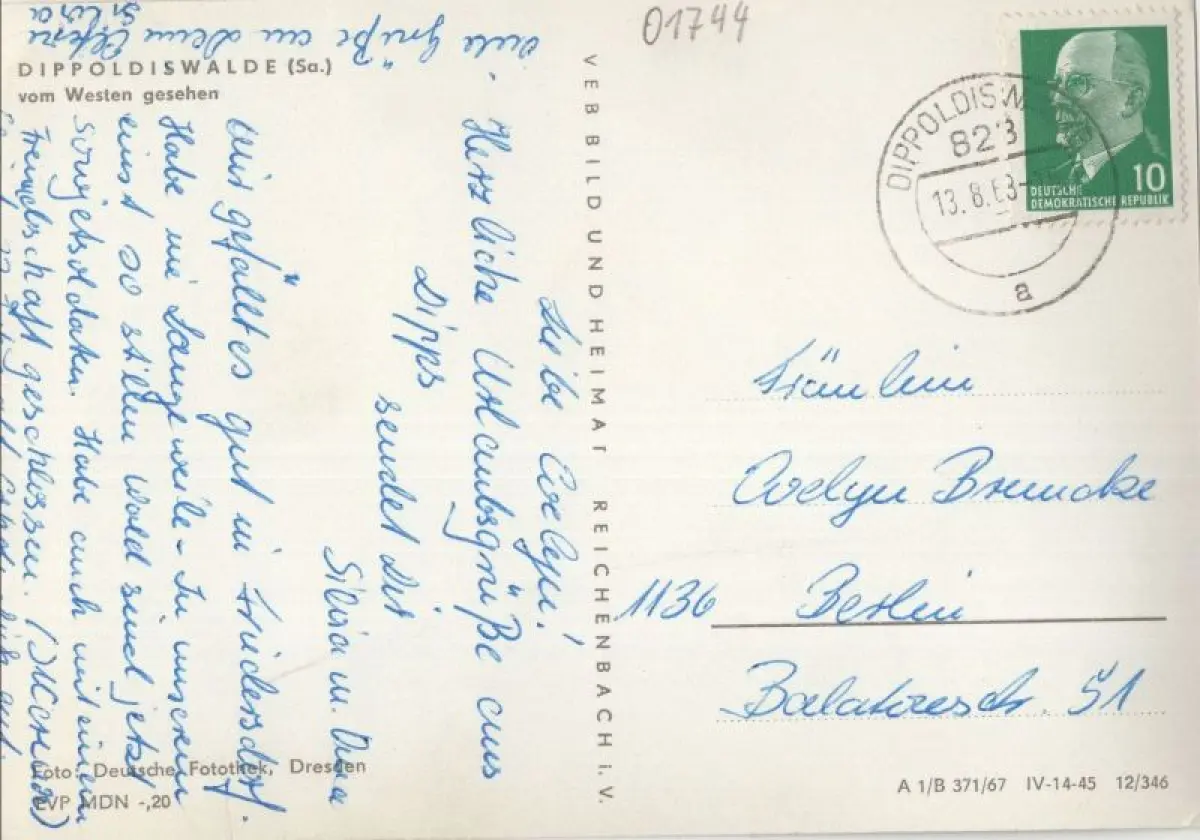 01744
DIPPOLDISWALDE (Sa.)
vom Westen gesehen
Viele Grüße an Deine Eltern
Silvia
Liebe Evelyn!
Herzliche Urlaubsgrüße aus
Dipps
sendet Dir
Silvia u. Oma
Mir gefällt es gut in Friedersdorf.
Habe nie Langeweile - In unserem
einst so stillen Wald sind jetzt
Sowjetsoldaten. Habe auch mit einem
Freundschaft geschlossen.
VEB BILD UND HEIMAT REICHENBACH i. V.
DIPPOLDISW
823
13. 8. 68-
a
10
DEUTSCHE
DEMOKRATISCHE REPUBLIK
Fräulein
Evelyn Brundke
1136 Berlin
Balatonstr. 51
Foto: Deutsche Fotothek, Dresden
EVP MDN -,20
A 1/B 371/67 IV-14-45 12/346